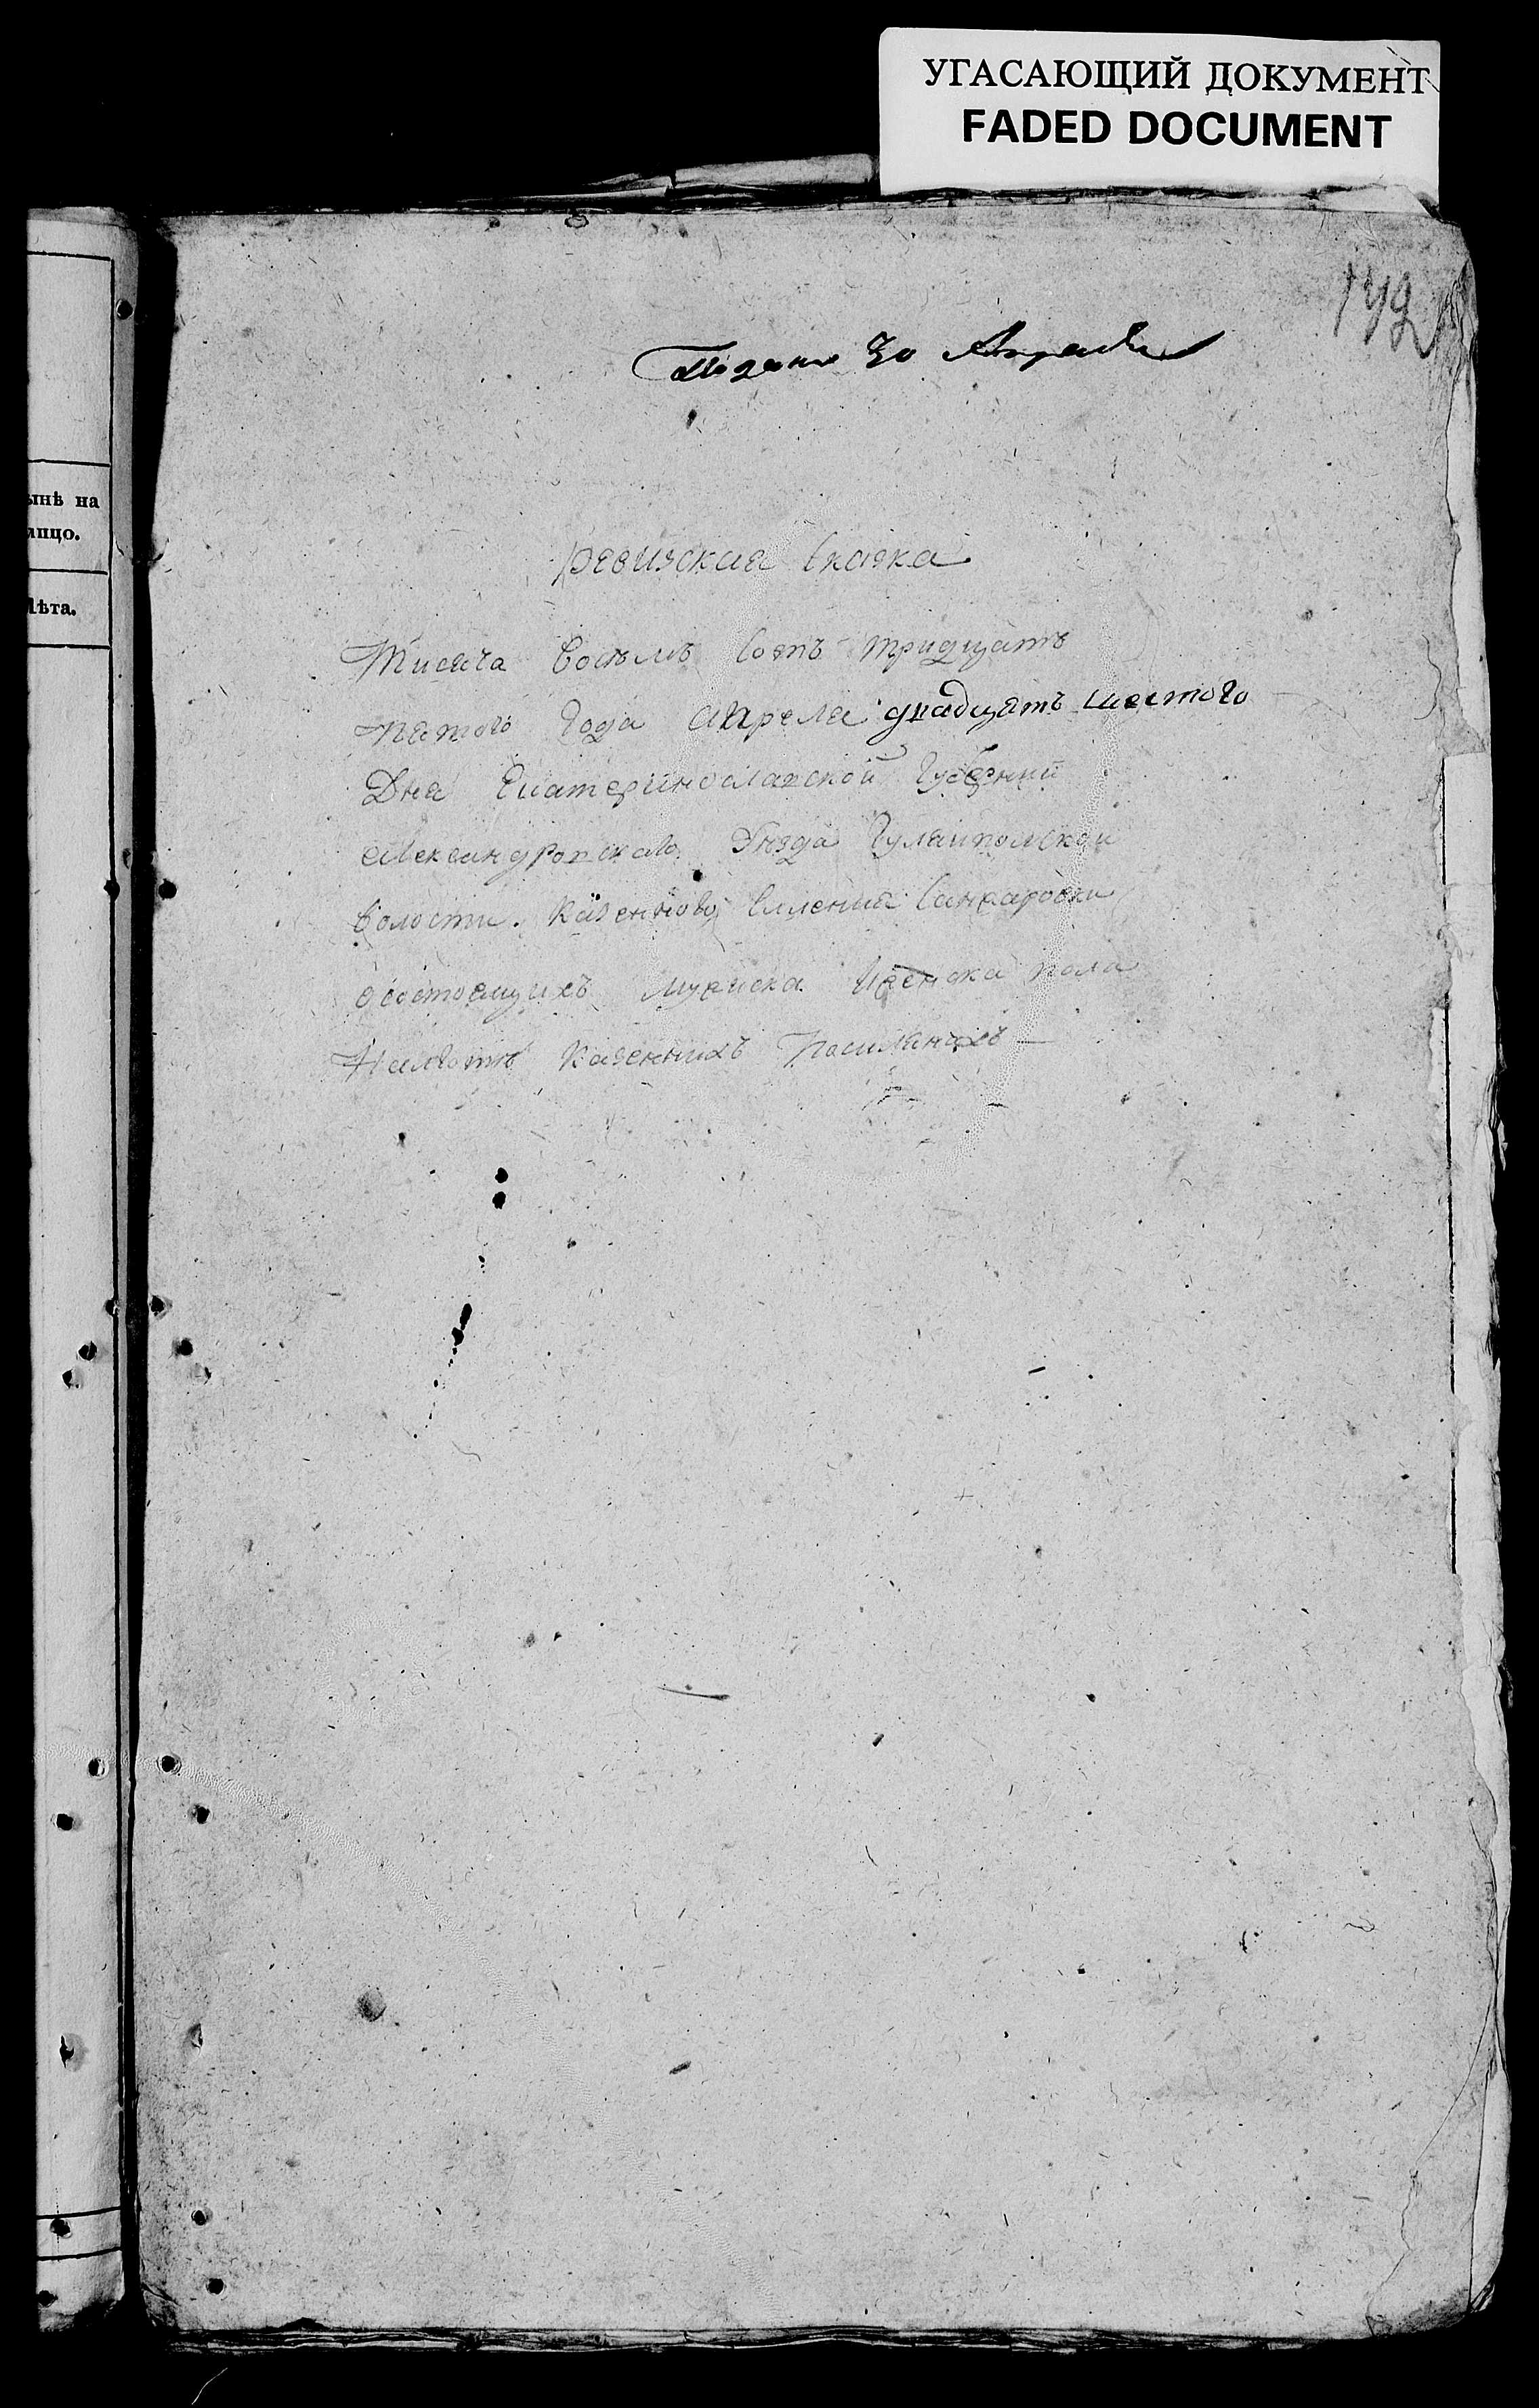 УГАСАЮЩИЙ ДОКУМЕНТ
FADED DOCUMENT
172
Подана 30 Апреля
ынѣ на
лицо.
Лѣта.
ревизская Сказка
Тисяча Восемъ Сотъ тридцатъ
пятого Года апреля двадцатъ шестого
Дня Екатеринославской Губернии
александровскаго Уезда Гуляйпольской
Волости Казенново Силения Санжаровки
о состоящихъ мужеска женска пола
Казенныхъ Посилянахъ